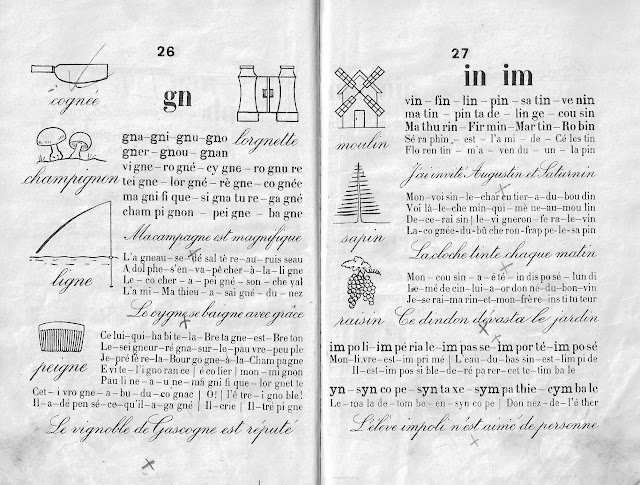 26
cognée
gn
lorgnette
gna–gni–gnu–gno
gner–gnou–gnan
champignon
vi gne – ro gné – cy gne – ro gnu re
tei gne – lor gné – rè gne – co gnée
ma gni fi que – si gna tu re – ga gné
cham pi gnon – pei gne – ba gne
Ma campagne est magnifique
ligne
L'a gneau–se–dé sal tè re–au–ruis seau
A dol phe–s'en–va–pê cher–à–la–li gne
Le–co cher–a–pei gné–son–che val
L'a mi–Ma thieu–a–sai gné–du–nez
Le cygne se baigne avec grâce
peigne
Ce lui–qui–ha bi te–la–Bre ta gne–est–Bre ton
Le–sei gneur–ré gna–sur–le–pau vre–peu ple
Je–pré fè re–la–Bour go gne–à–la–Cham pa gne
E vi te–l'i gno ran ce | é co lier | mon–mi gnon
Pau li ne–a–u ne–ma gni fi que–lor gnet te
Cet–i vro gne–a–bu–du–co gnac | O! | l'ê tre–i gno ble!
Il–a–dé pen sé–ce–qu'il–a–ga gné | Il–crie | Il–tré pi gne
Le vignoble de Gascogne est réputé
27
in im
moulin
vin – fin – lin – pin – sa tin – ve nin
ma tin – pin ta de – lin ge – cou sin
Ma thu rin – Fir min – Mar tin – Ro bin
Sé ra phin – est – l'a mi – de – Cé les tin
Flo ren tin – m'a – ven du – un – la pin
J'ai invité Augustin et Saturnin
sapin
Mon–voi sin–le–char cu tier–a–du–bou din
Voi là–le–che min–qui–mè ne–au–mou lin
De–ce–rai sin | le–vi gneron–fe ra–le–vin
La–co gnée–du–bû che ron–frap pe–le–sa pin
La cloche tinte chaque matin
raisin
Mon–cou sin–a–é té–in dis po sé–lun di
Le–mé de cin–lui–a–or don né–du–bon–vin
Je–se rai–ma rin–et–mon–frè re–ins ti tu teur
Ce dindon dévasta le jardin
im po li–im pé ria le–im pas se–im por té–im po sé
Mon–li vre–est–im pri mé | L'eau–du–bas sin–est–lim pi de
Il–est–im pos si ble–de–ré pa rer–cet te–tim ba le
yn–syn co pe–syn ta xe–sym pa thie–cym ba le
Le–ma la de–tom be–en–syn co pe | Don nez–de–l'é ther
L'élève impoli n'est aimé de personne